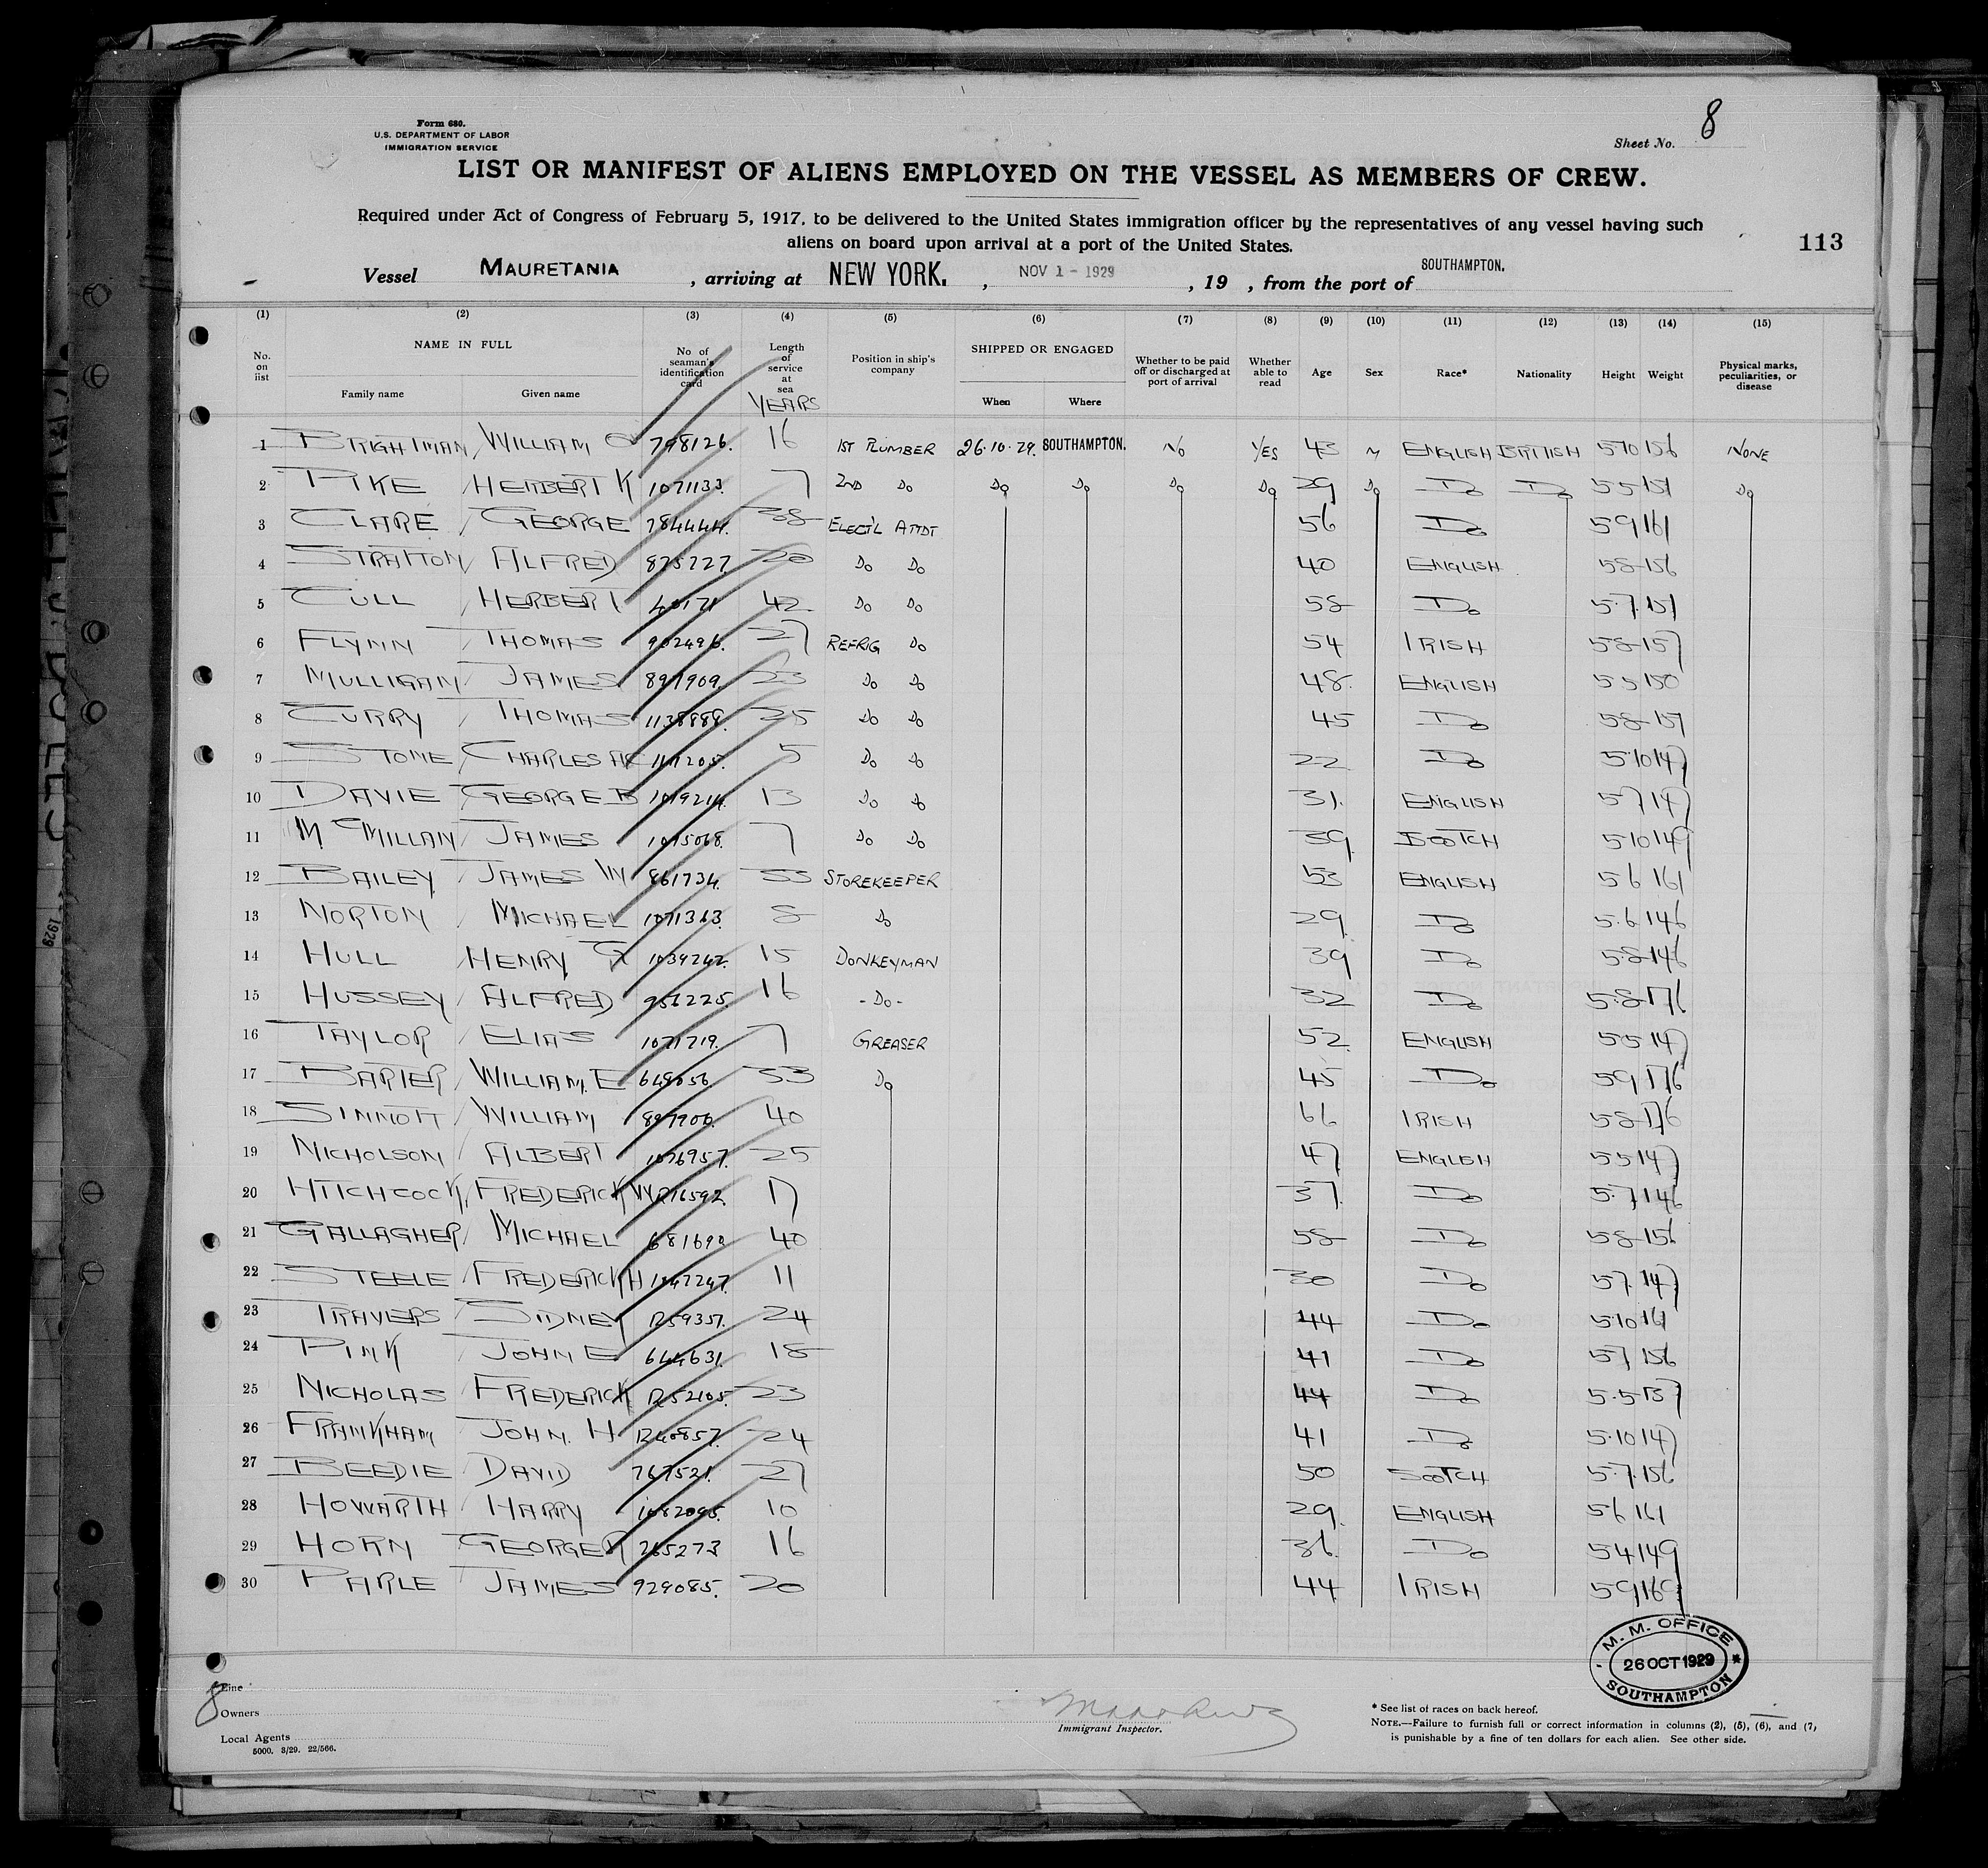 8
Form 680.
U.S. DEPARTMENT OF LABOR
IMMIGRATION SERVICE
Sheet No.
LIST OR MANIFEST OF ALIENS EMPLOYED ON THE VESSEL AS MEMBERS OF CREW.
Required under Act of Congress of February 5, 1917, to be delivered to the United States immigration officer by the representatives of any vessel having such
aliens on board upon arrival at a port of the United States.
113
Vessel MAURETANIA , arriving at NEW YORK. , NOV 1 - 1929 , 19 , from the port of SOUTHAMPTON.
(1) (2) (3) (4) (5) (6) (7) (8) (9) (10) (11) (12) (13) (14) (15)
No. on list NAME IN FULL Family name Given name No of seaman's identification card Length of service at sea YEARS Position in ship's company SHIPPED OR ENGAGED When Where Whether to be paid off or discharged at port of arrival Whether able to read Age Sex Race* Nationality Height Weight Physical marks, peculiarities, or disease
1 BRIGHTMAN WILLIAM 798126. 16 1ST PLUMBER 26.10.29. SOUTHAMPTON. NO YES 43 M ENGLISH BRITISH 5 10 156 NONE
2 PIKE HERBERT K 1071133. 7 2ND DO DO DO DO DO 29 DO DO DO 5 5 151 DO
3 CLARE GEORGE 784444. 38 ELECT'L ATTDT 56 DO 5 9 161
4 STRATTON ALFRED 875727. 20 DO DO 40 ENGLISH 5 8 156
5 CULL HERBERT 42 DO DO 58 DO 5.7.151
6 FLYNN THOMAS 902496. 27 REFRIG DO 54 IRISH 5 8 157
7 MULLIGAN JAMES 897909. 23 DO DO 48. ENGLISH 5 5 150
8 CURRY THOMAS 25 DO DO 45 DO 5 8 151
9 STONE CHARLES 5 DO DO 22 DO 5.10 147
10 DAVIE GEORGE B 1019214. 13 DO DO 31. ENGLISH 5 7 147
11 McMILLAN JAMES 1075068. 7 DO DO 39 SCOTCH 5 10 149
12 BAILEY JAMES W 861734. 33 STOREKEEPER 53 ENGLISH 5 6 161
13 NORTON MICHAEL 1071363. 8 DO 29 DO 5.6.146
14 HULL HENRY G 1039242. 15 DONKEYMAN 39 DO 5.8 146
15 HUSSEY ALFRED 956225. 16 -DO- 32 DO 5.8.176
16 TAYLOR ELIAS 1071719. 7 GREASER 52. ENGLISH 5 5 147
17 BARTER WILLIAM. E 648056. 33 DO 45 DO 5 9 176
18 SINNOTT WILLIAM 897900. 40 66 IRISH 5 8 176
19 NICHOLSON ALBERT 1076957. 25 47 ENGLISH 5 5 147
20 HITCHCOCK FREDERICK W R16592. 17 37. DO 5.7.146
21 GALLAGHER MICHAEL 681690 40 58 DO 5 8 156
22 STEELE FREDERICK H 1047247. 11 30 DO 5 7. 147
23 TRAVERS SIDNEY R59351. 24 44 DO 5.10 161
24 PINK JOHN E 644631. 18 41 DO 5 7 156
25 NICHOLAS FREDERICK R52105. 23 44 DO 5.5 137
26 FRANKHAM JOHN. H R40857. 24 41 DO 5.10 147
27 BEEDIE DAVID 767521. 27 50 SCOTCH 5.7.156
28 HOWARTH HARRY 1082095. 10 29. ENGLISH 5 6 161
29 HORN GEORGE R 265273 16 36. DO 5 4 149
30 PARLE JAMES 929085. 20 44 IRISH 5 9 169
M. M. OFFICE
26 OCT 1929
SOUTHAMPTON
8
Line
Owners
Local Agents
5000. 3/29. 22/566.
Immigrant Inspector.
* See list of races on back hereof.
NOTE.—Failure to furnish full or correct information in columns (2), (5), (6), and (7)
is punishable by a fine of ten dollars for each alien. See other side.